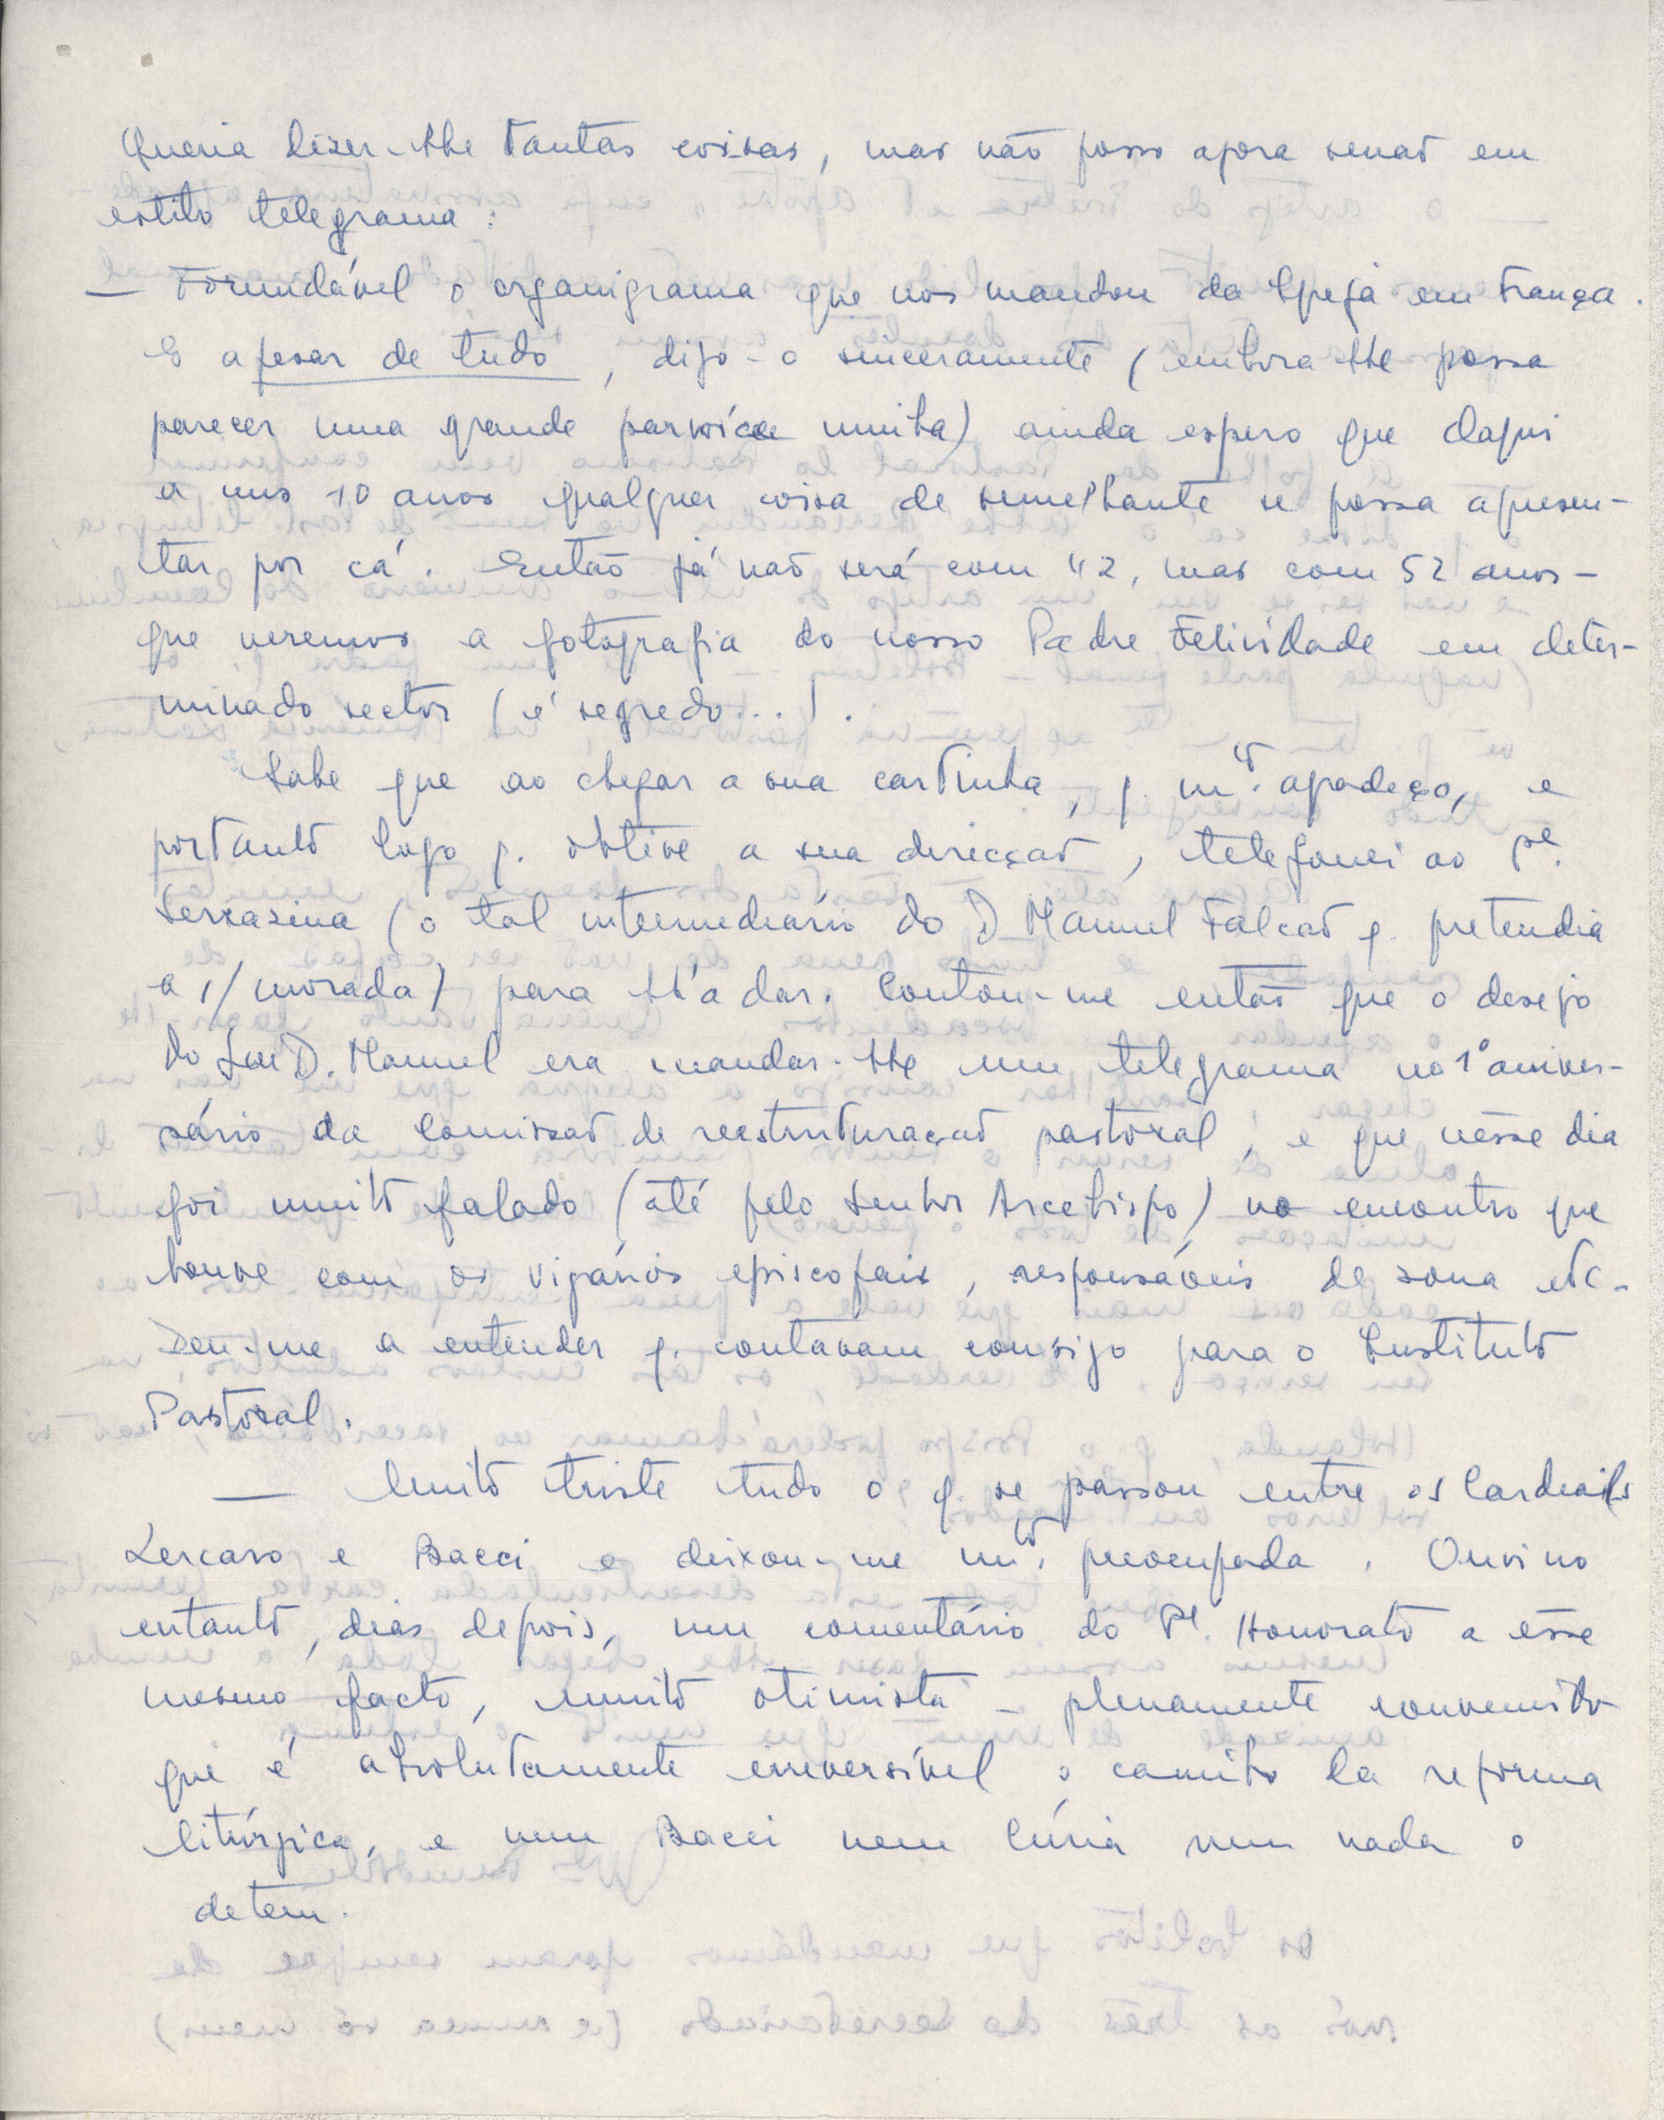 Queria dizer-lhe tantas coisas, mas não posso agora senão em
estilo telegrama:
— Formidável o organigrama que nos mandou da Igreja em França.
E apesar de tudo, digo-o sinceramente (embora lhe possa
parecer uma grande parvoíce minha) ainda espero que daqui
a uns 10 anos qualquer coisa de semelhante se possa apresen-
tar por cá. Então já não será com 42, mas com 52 anos -
que veremos a fotografia do nosso Padre Felicidade em deter-
minado sector (é segredo...).
Sabe que ao chegar a sua cartinha, q. mtº. agradeço, e
portanto logo q. obtive a sua direcção, telefonei ao Pe.
Serrazina (o tal intermediário do D Manuel Falcão q. pretendia
a s/ morada) para lh'a dar. Contou-me então que o desejo
do Snr D. Manuel era mandar-lhe um telegrama no 1º aniver-
sário da Comissão de reestruturação pastoral, e que nesse dia
foi muito falado (até pelo Senhor Arcebispo) no encontro que
houve com os vigários episcopais, responsáveis de zona etc.
Deu-me a entender q. contavam consigo para o Instituto
Pastoral.
— Muito triste tudo o q. se passou entre os Cardeais
Lercaro e Bacci e deixou-me mtº. preocupada. Ouvi no
entanto, dias depois, um comentário do Pe. Honorato a esse
mesmo facto, muito otimista - plenamente convencido
que é absolutamente irreversível o caminho da reforma
litúrgica, e nem Bacci nem Cúria nem nada o
detem.